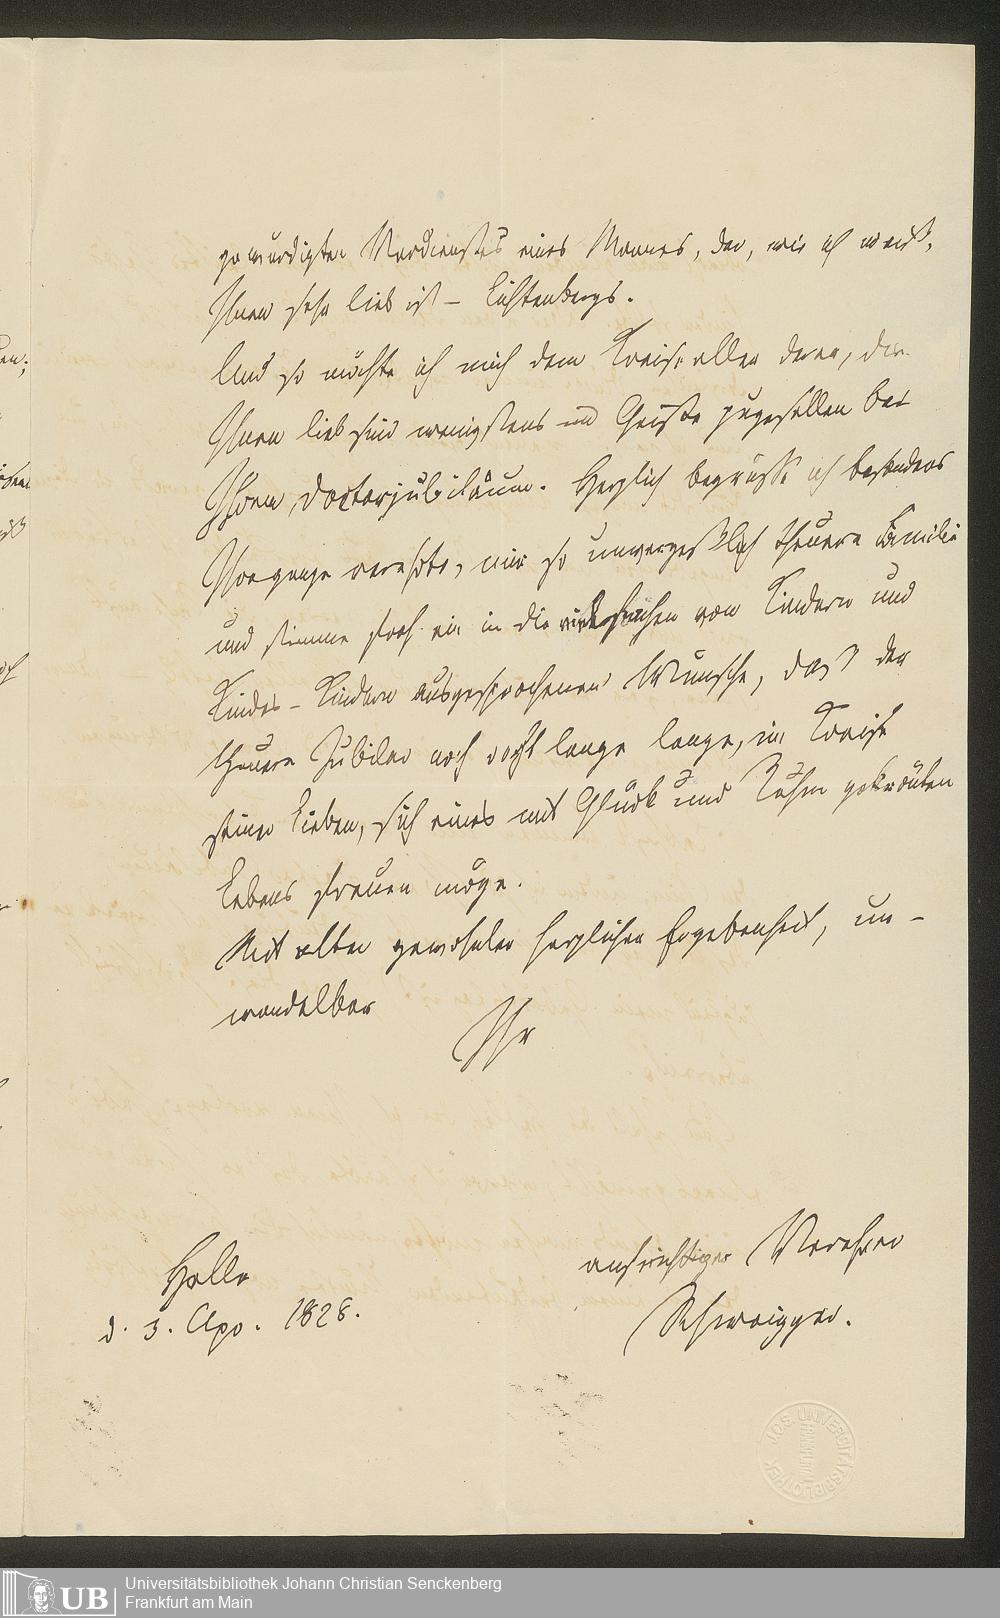 gewürdigten Verdienstes eines Mannes, der, wie ich weiß,
Ihnen sehr lieb ist – Lichtenbergs.
Und so möchte ich mich dem Kreise aller derer, die
Ihnen lieb sind wenigstens im Geiste zugesellen bei
Ihrem Doctorjubiläum. Herzlich begrüsse ich besonders
Ihre ganze verehrte, mir so unvergeßlich theuere Familie
und stimme froh ein in die von Kindern und
Kindes-Kindern ausgesprochenen Wünsche, daß der
theuere Jubilar noch recht lange lange, im Kreise
seiner Lieben, sich eines mit Glück und Ruhm gekrönten
Lebens freuen möge.
Mit alter gewohnter herzlicher Ergebenheit, un-
wandelbar
Ihr
aufrichtiger Verehrer
Schweigger.
Halle
d. 3. Apr. 1828.
JOS. UNIVERSITÄTSBIBLIOTHEK
FRANKFURT
UB
Universitätsbibliothek Johann Christian Senckenberg
Frankfurt am Main